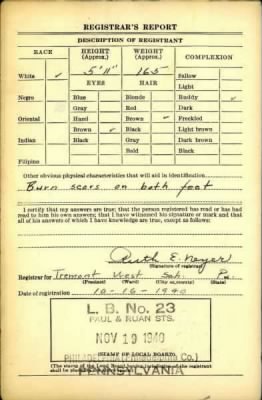 REGISTRAR'S REPORT
DESCRIPTION OF REGISTRANT
RACE HEIGHT (Approx.) WEIGHT (Approx.) COMPLEXION
5' 11" 165
White ✓ Sallow
EYES HAIR Light
Negro Blue Blonde Ruddy ✓
Gray Red Dark
Oriental Hazel Brown ✓ Freckled
Brown ✓ Black Light brown
Indian Black Gray Dark brown
Bald Black
Filipino
Other obvious physical characteristics that will aid in identification
Burn scars on both feet
I certify that my answers are true; that the person registered has read or has had
read to him his own answers; that I have witnessed his signature or mark and that
all of his answers of which I have knowledge are true, except as follows:
Ruth E.
(Signature of registrar)
Registrar for Tremont West Sch. Pa.
(Precinct) (Ward) (City or county) (State)
Date of registration 10-16-1940
L. B. No. 23
PAUL & RUAN STS.
NOV 19 1940
PHILADELPHIA (Philadelphia Co.)
(STAMP OF LOCAL BOARD)
PENNSYLVANIA
(The stamp of the Local Board having jurisdiction of the registrant
shall be placed in the above space.)